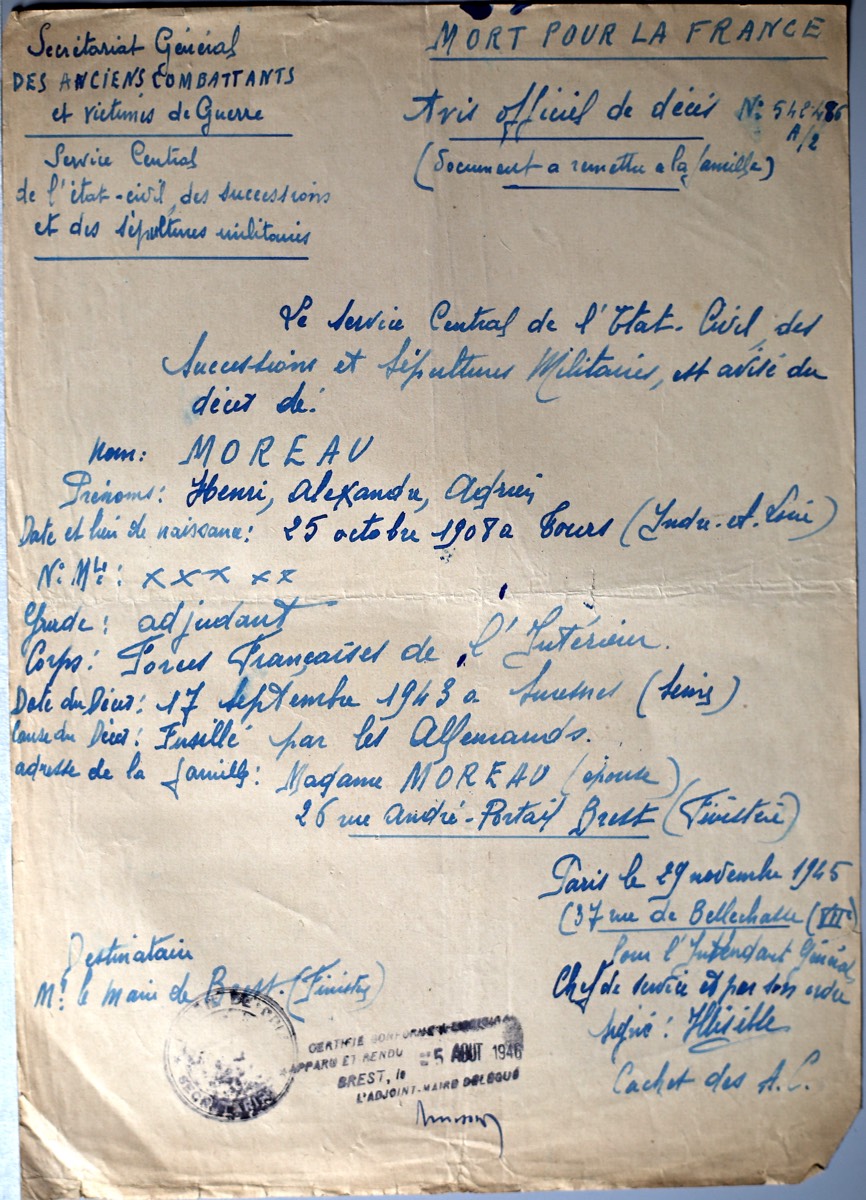 Secrétariat Général
DES ANCIENS COMBATTANTS
et victimes de Guerre
Service Central
de l'état-civil, des successions
et des sépultures militaires
MORT POUR LA FRANCE
Avis officiel de décès No 542486
A/2
(document a remettre a la famille)
Le Service Central de l'Etat-Civil, des
Successions et Sépultures Militaires, est avisé du
décès de:
Nom: MOREAU
Prénoms: Henri, Alexandre, Adrien
Date et lieu de naissance: 25 octobre 1908 a Tours (Indre-et-Loire)
No Mle: x x x x x
Grade: adjudant
Corps: Forces Françaises de l'Intérieur.
Date du Décès: 17 Septembre 1943 a Suresnes (Seine)
Cause du Décès: Fusillé par les Allemands.
adresse de la famille: Madame MOREAU (épouse)
26 rue André-Portail Brest (Finistère)
Paris le 29 novembre 1945
(37 rue de Bellechasse (VIIe)
Pour l'Intendant Général
Chef de service et par son ordre
signé: Illisible
Cachet des A.C.
Destinataire
Mr le Maire de Brest. (Finistère)
CERTIFIE CONFORME A L'ORIGINAL
APPARU ET RENDU
BREST, le 5 AOUT 1946
L'ADJOINT-MAIRE DELEGUE